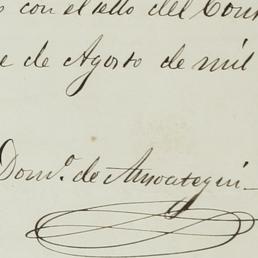 con el sello del Con
e de Agosto de mil
Dom.º de Ansoategui